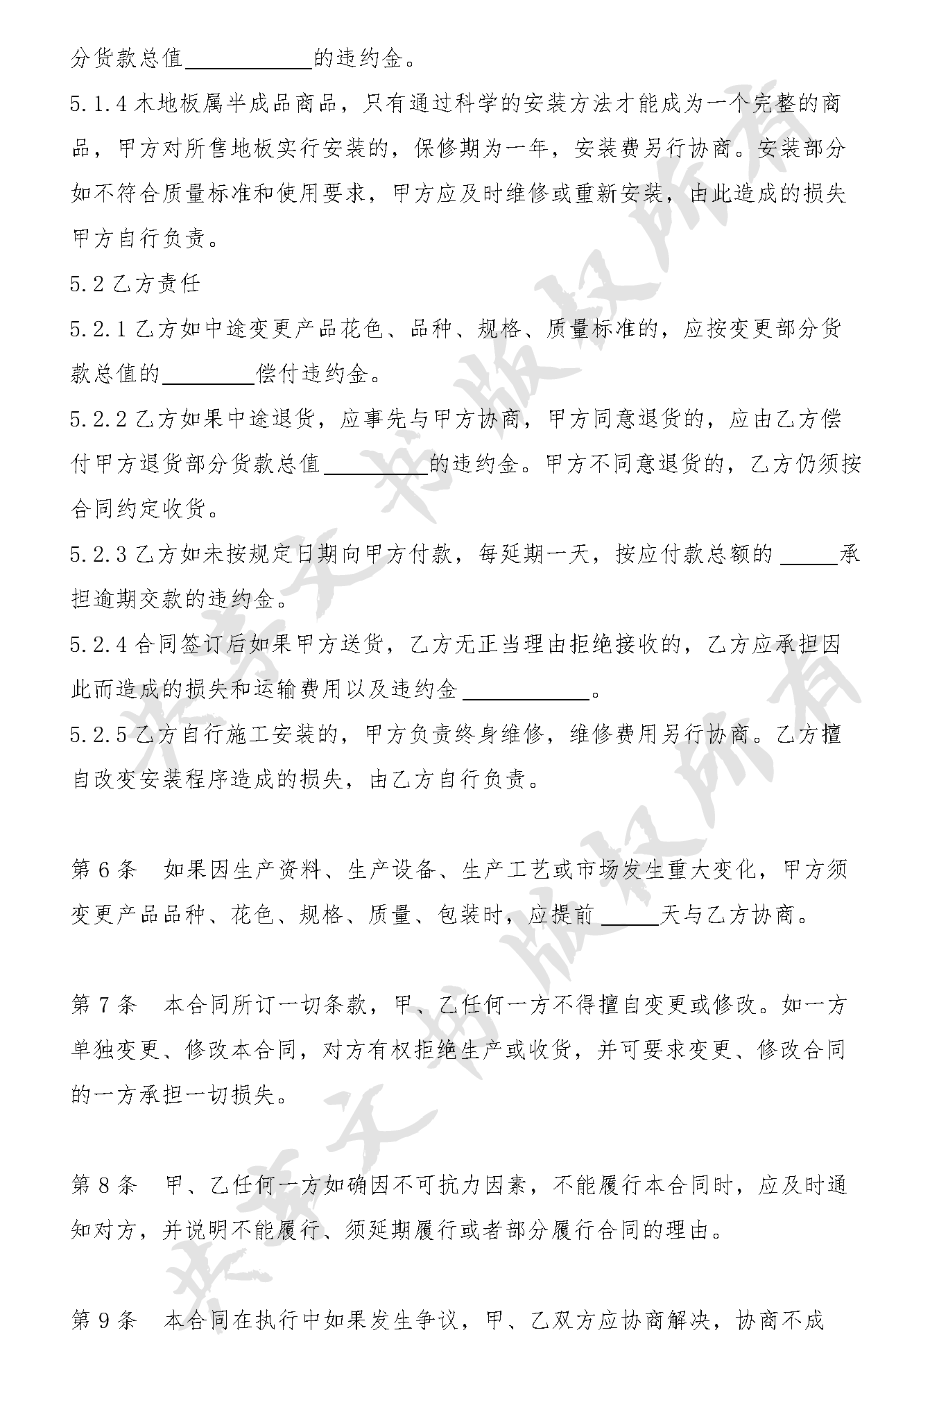 分货款总值___________的违约金。
5.1.4木地板属半成品商品，只有通过科学的安装方法才能成为一个完整的商
品，甲方对所售地板实行安装的，保修期为一年，安装费另行协商。安装部分
如不符合质量标准和使用要求，甲方应及时维修或重新安装，由此造成的损失
甲方自行负责。
5.2乙方责任
5.2.1乙方如中途变更产品花色、品种、规格、质量标准的，应按变更部分货
款总值的________偿付违约金。
5.2.2乙方如果中途退货，应事先与甲方协商，甲方同意退货的，应由乙方偿
付甲方退货部分货款总值_________的违约金。甲方不同意退货的，乙方仍须按
合同约定收货。
5.2.3乙方如未按规定日期向甲方付款，每延期一天，按应付款总额的_____承
担逾期交款的违约金。
5.2.4合同签订后如果甲方送货，乙方无正当理由拒绝接收的，乙方应承担因
此而造成的损失和运输费用以及违约金___________。
5.2.5乙方自行施工安装的，甲方负责终身维修，维修费用另行协商。乙方擅
自改变安装程序造成的损失，由乙方自行负责。
第6条　如果因生产资料、生产设备、生产工艺或市场发生重大变化，甲方须
变更产品品种、花色、规格、质量、包装时，应提前_____天与乙方协商。
第7条　本合同所订一切条款，甲、乙任何一方不得擅自变更或修改。如一方
单独变更、修改本合同，对方有权拒绝生产或收货，并可要求变更、修改合同
的一方承担一切损失。
第8条　甲、乙任何一方如确因不可抗力因素，不能履行本合同时，应及时通
知对方，并说明不能履行、须延期履行或者部分履行合同的理由。
第9条　本合同在执行中如果发生争议，甲、乙双方应协商解决，协商不成
共享文书版权所有
共享文书版权所有